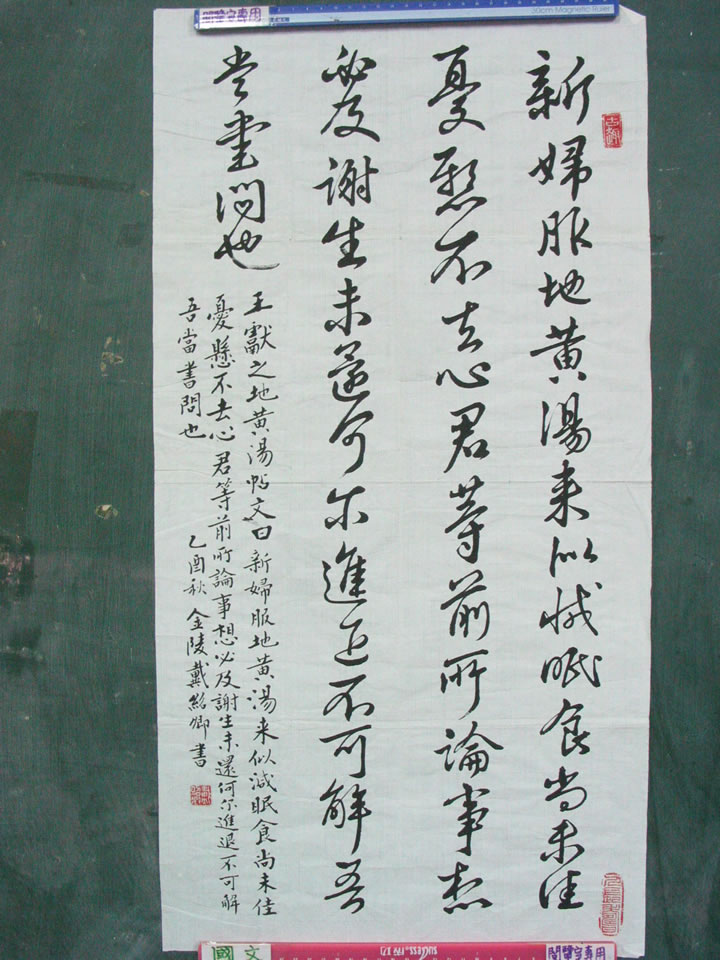 新婦服地黄湯来似減眠食尚未佳
憂懸不去心君等前所論事想
必及謝生未還何尔進退不可解吾
當書問也
王獻之地黄湯帖文曰新婦服地黄湯来似減眠食尚未佳
憂懸不去心君等前所論事想必及謝生未還何尔進退不可解
吾當書問也
乙酉秋 金陵戴紹卿書
30cm Magnetic Ruler
國文
SUCCESS